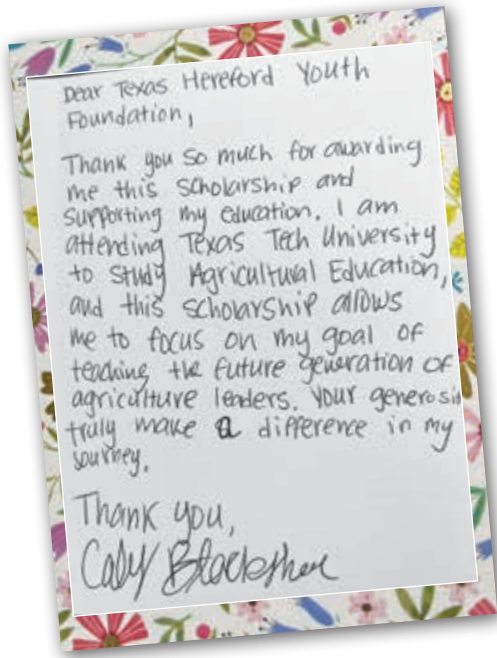 Dear Texas Hereford Youth
Foundation,
Thank you so much for awarding
me this scholarship and
supporting my education. I am
attending Texas Tech University
to study Agricultural Education,
and this scholarship allows
me to focus on my goal of
teaching the future generation of
agriculture leaders. Your generosi
truly make a difference in my
journey.
Thank you,